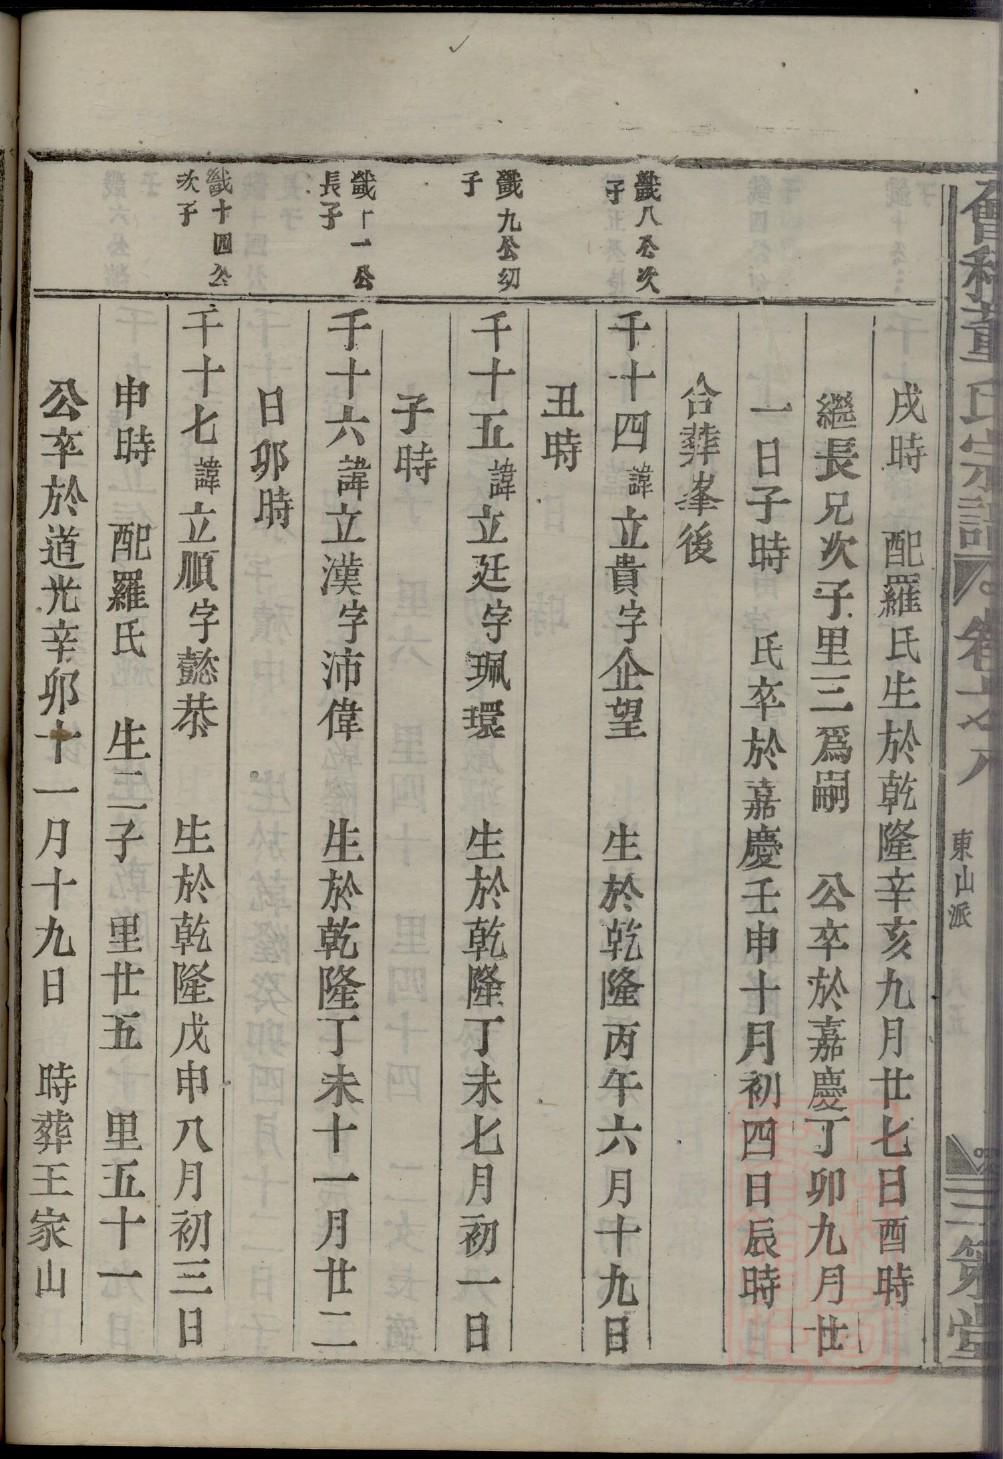 會稽董氏宗譜 卷之八 東山派 三策堂
戌時　配羅氏生於乾隆辛亥九月廿七日酉時
繼長兄次子里三爲嗣　公卒於嘉慶丁卯九月廿
一日子時　氏卒於嘉慶壬申十月初四日辰時
合葬峯後
籛八公次子
千十四諱立貴字企望　生於乾隆丙午六月十九日
丑時
籛九公幼子
千十五諱立廷字珮環　生於乾隆丁未七月初一日
子時
籛十一公長子
千十六諱立漢字沛偉　生於乾隆丁未十一月廿二
日卯時
籛十四公次子
千十七諱立順字懿恭　生於乾隆戊申八月初三日
申時　配羅氏　生二子　里廿五　里五十一
公卒於道光辛卯十一月十九日　時葬王家山